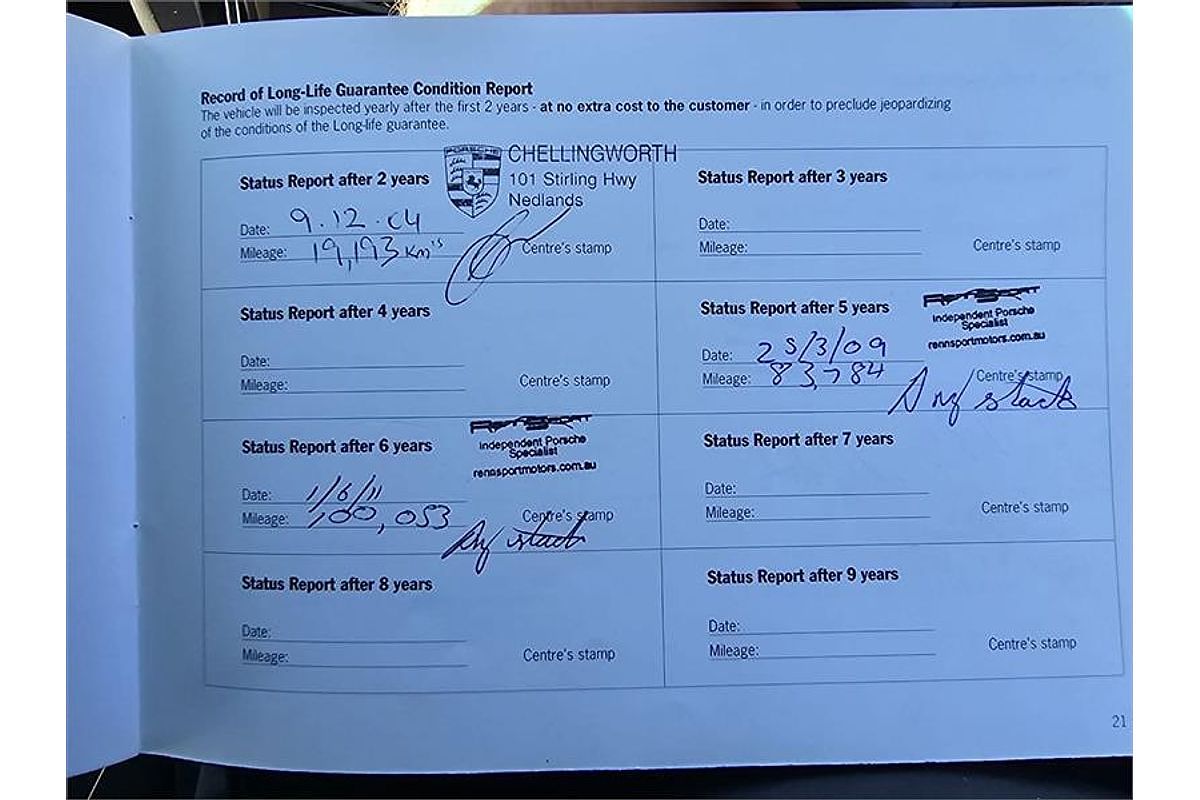 Record of Long-Life Guarantee Condition Report
The vehicle will be inspected yearly after the first 2 years - at no extra cost to the customer - in order to preclude jeopardizing
of the conditions of the Long-life guarantee.
Status Report after 2 years
PORSCHE
CHELLINGWORTH
101 Stirling Hwy
Nedlands
Date: 9.12.04
Mileage: 19,193 Km's
Centre's stamp
Status Report after 3 years
Date:
Mileage:
Centre's stamp
Status Report after 4 years
Date:
Mileage:
Centre's stamp
Status Report after 5 years
Independent Porsche
Specialist
rennsportmotors.com.au
Date: 25/3/09
Mileage: 83,784
Centre's stamp
Status Report after 6 years
Independent Porsche
Specialist
rennsportmotors.com.au
Date: 1/6/11
Mileage: 100,053
Centre's stamp
Status Report after 7 years
Date:
Mileage:
Centre's stamp
Status Report after 8 years
Date:
Mileage:
Centre's stamp
Status Report after 9 years
Date:
Mileage:
Centre's stamp
21